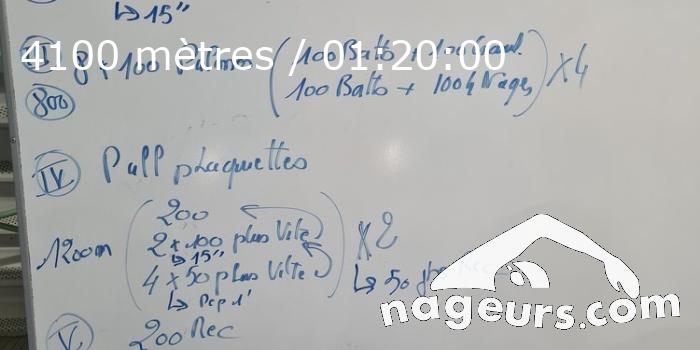 ↳ 15"
4100 mètres / 01:20:00
8 x 100
(100 Batts + 100
100 Batts + 100 4 Nages) x 4
800
IV Pull plaquettes
1200m (200
2 x 100 plus Vite
↳ 15"
4 x 50 plus Vite) x 2
↳ Rep 1'
↳ 50
V 200 Rec
nageurs.com